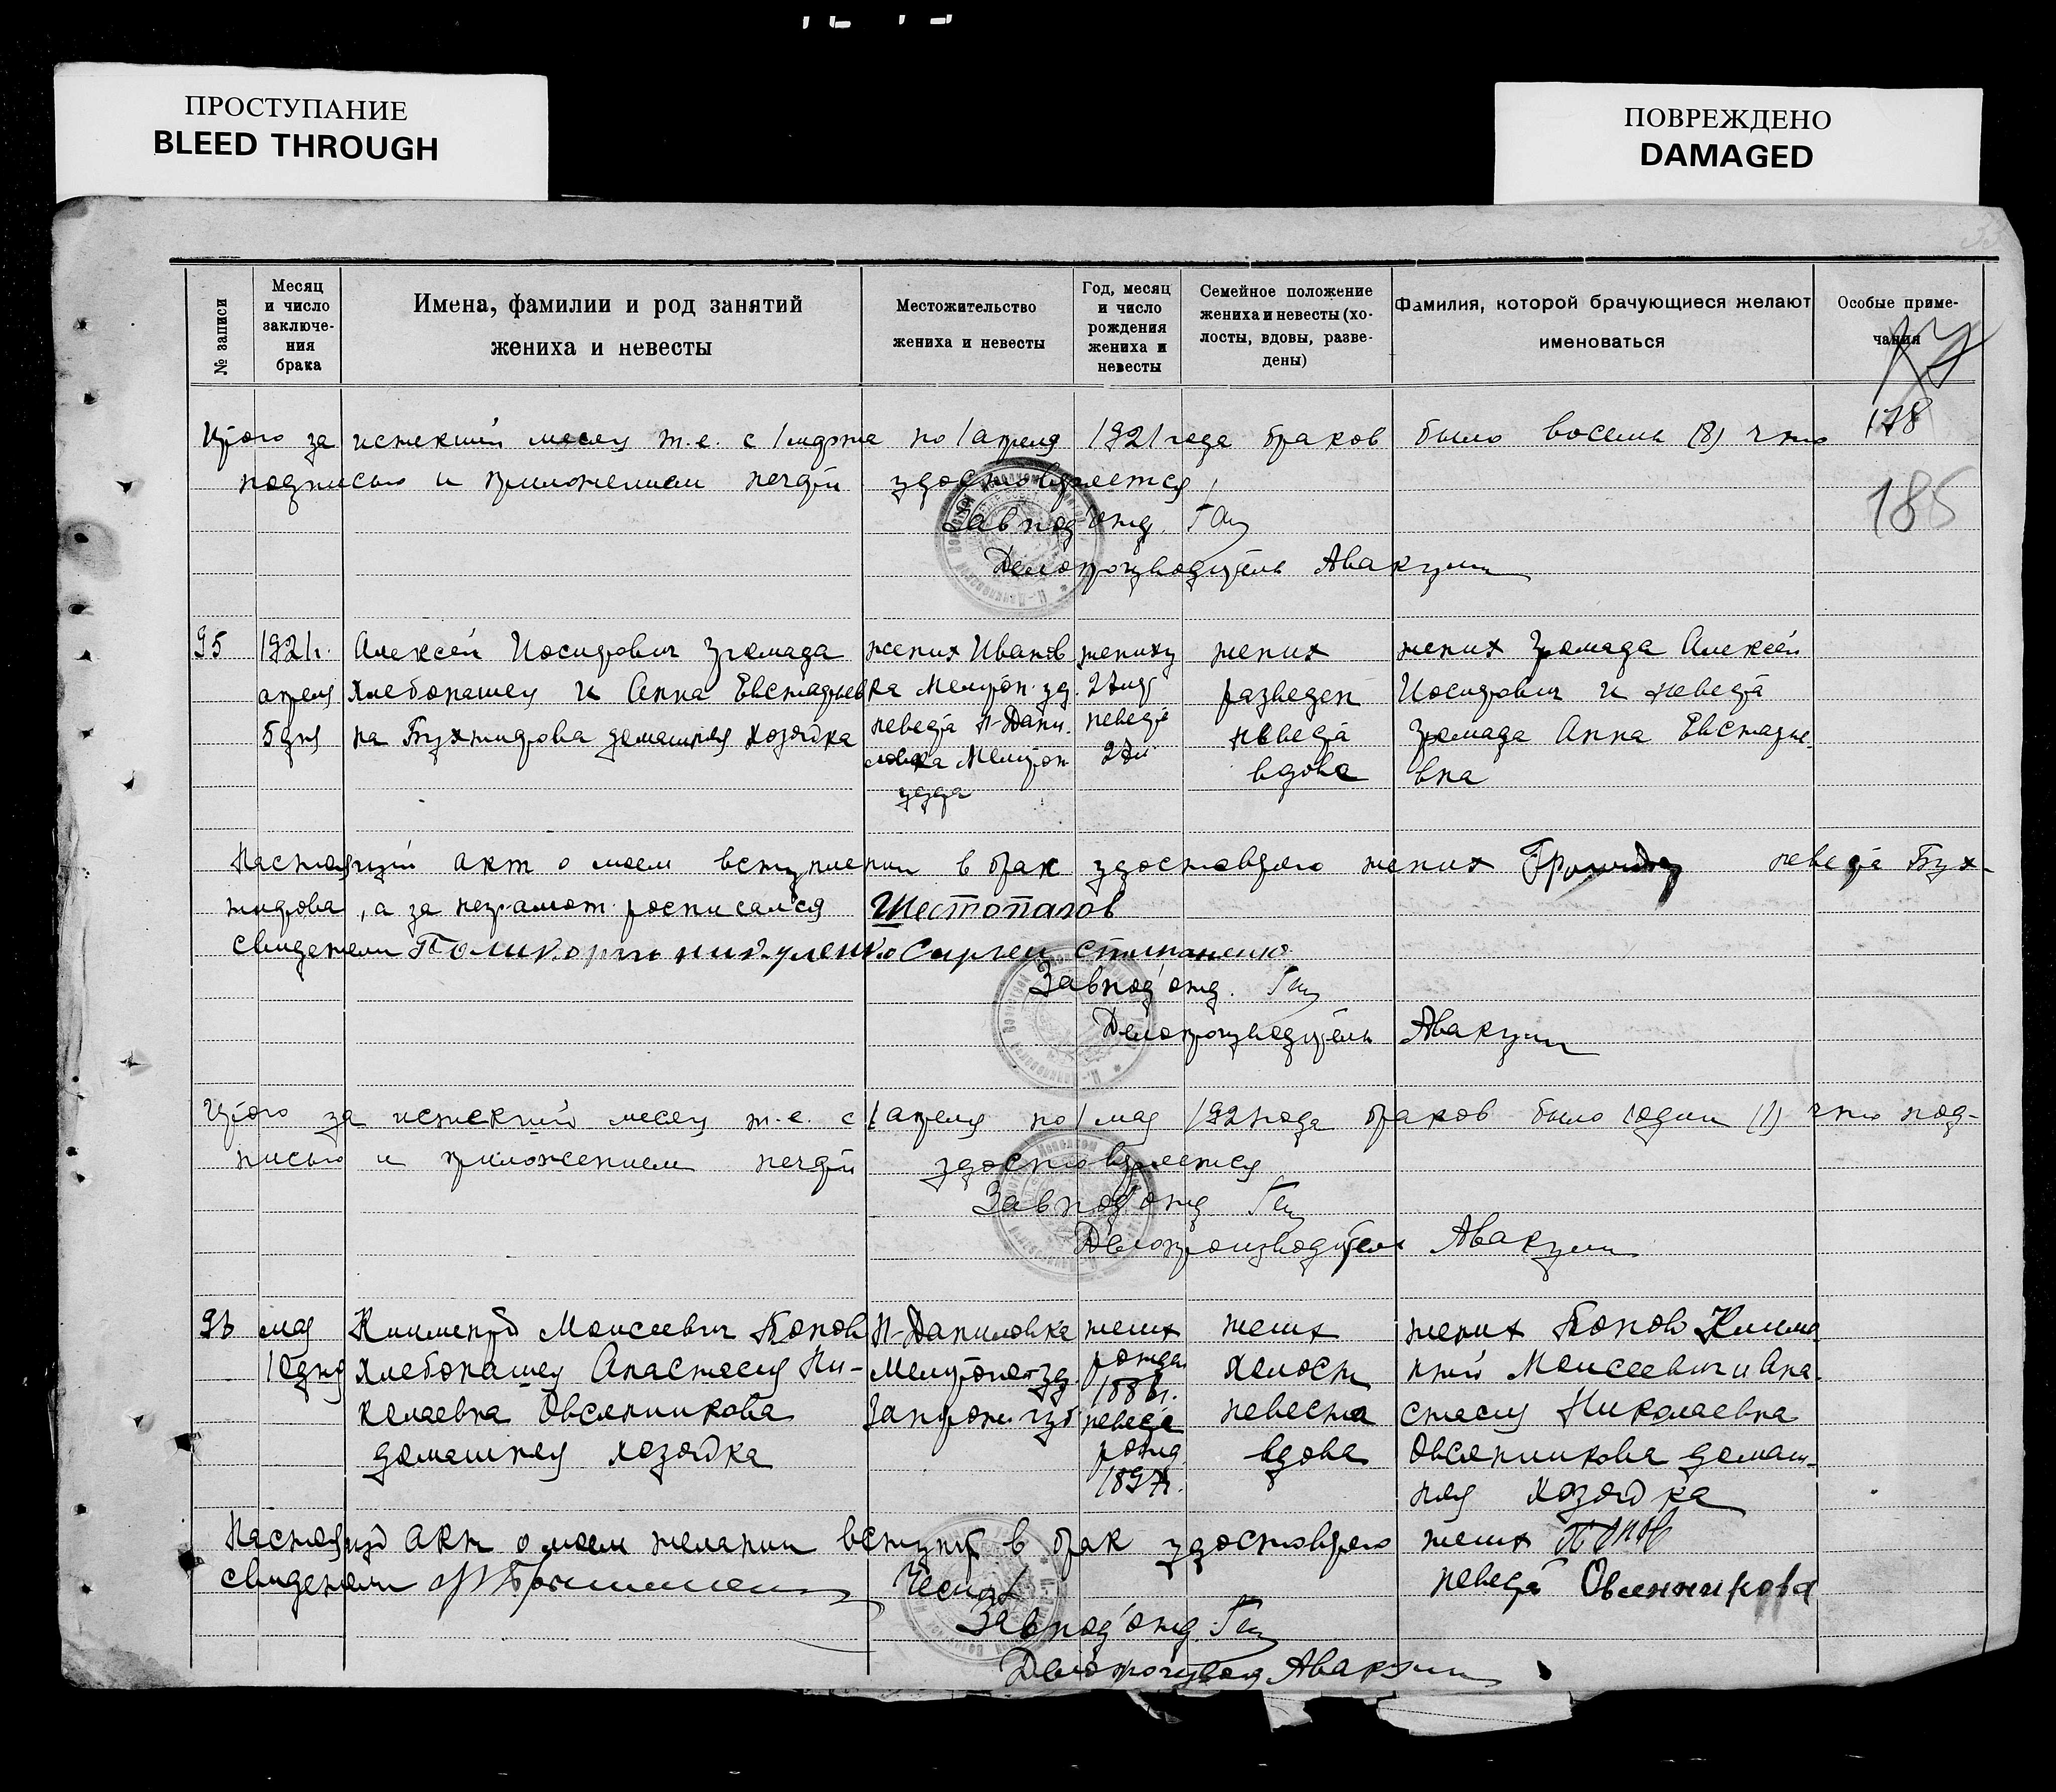 ПРОСТУПАНИЕ
BLEED THROUGH
ПОВРЕЖДЕНО
DAMAGED
№ записи
Месяц и число заключе-ния брака
Имена, фамилии и род занятий жениха и невесты
Местожительство жениха и невесты
Год, месяц и число рождения жениха и невесты
Семейное положение жениха и невесты (хо-лосты, вдовы, разве-дены)
Фамилия, которой брачующиеся желают именоваться
Особые приме-чания
178
185
Итого за истекший месяц т.е. с 1 марта по 1 апреля 1921 года браков было восемь (8) что
подписью и приложением печати удостоверяется
Завподотд.
Делопроизводитель Авакумин
95
1921г. апреля 5 дня
Алексей Иосифович Громада
хлебопашец и Анна Евстафьев
на домашняя хозяйка
жених Иванов
ка Мелитоп. уд.
невеста Н-Дани-
ловка Мелитоп
уезда
жениху
27 лет
невесте
жених
разведен
невеста
вдова
жених Громада Алексей
Иосифович и невеста
Громада Анна Евстафие-
вна
Настоящий акт о моем вступлении в брак удостоверяю жених Громада невеста Бух-
а за неграмот. росписался Шестопалов
свидетели
Завподотд.
Делопроизводитель Авакумин
Итого за истекший месяц т.е. с 1 апреля по 1 мая 1921 года браков было один (1) что под-
писью и приложением печати удостоверяется
Завподотд
Делопроизводитель Авакумин
96
мая
10 дня
Климентий Моисеевич Попов
хлебопашец Анастасия Ни-
колаевна Овсянникова
домашняя хозяйка
Н-Даниловка
Мелитопол уд
Запорож губ
жених
рожд.
1886г.
невеста
рожд
1897г.
жених
холост
невеста
вдова
жених Попов Климе
нтий Моисеевич и Ана
стасия Николаевна
Овсянникова домаш-
няя хозяйка
Настоящий акт о моем желании вступить в брак удостоверяю жених Попов
свидетели
невеста Овсянникова
Завподотд.
Делопроизвод Авакумин